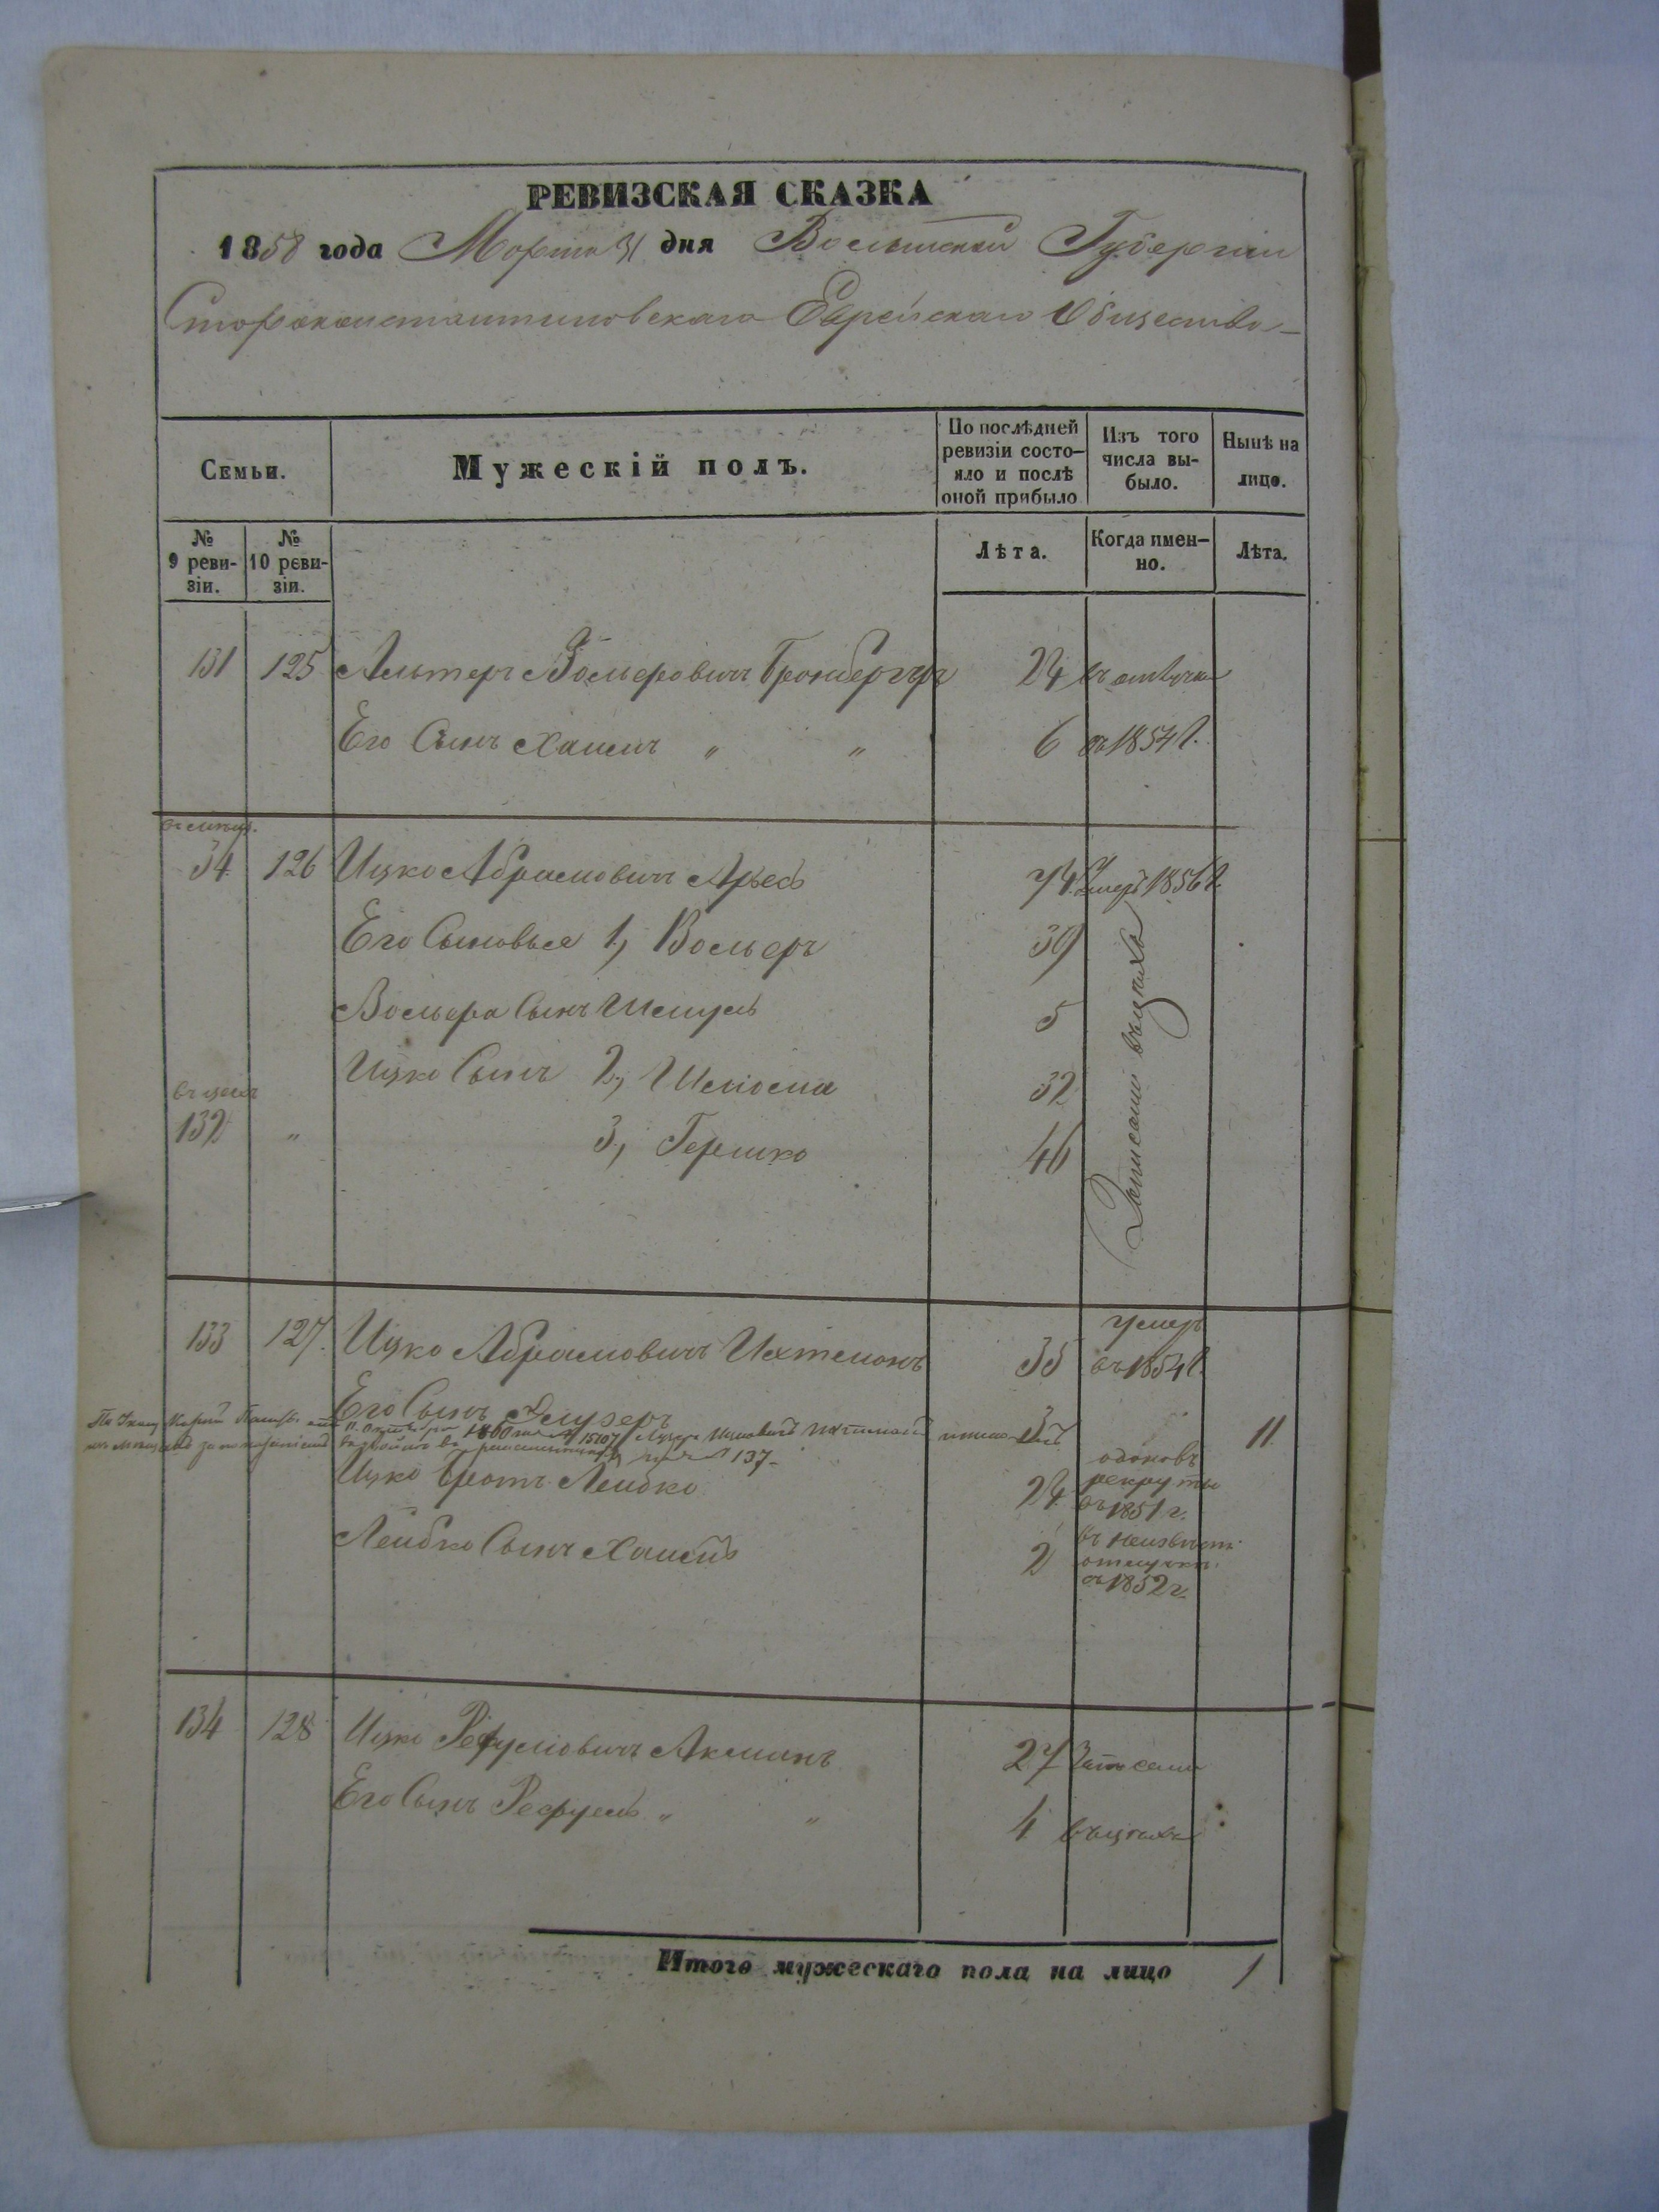 РЕВИЗСКАЯ СКАЗКА
1858 года Марта 31 дня Волынской Губернiи
Староконстантиновскаго Еврейскаго Общества
Семьи.
Мужескій полъ.
По послѣдней ревизіи состо-
яло и послѣ
оной прибыло
Изъ того
числа вы-
было.
Нынѣ на
лицо.
№
9 реви-
зіи.
№
10 реви-
зіи.
Лѣта.
Когда имен-
но.
Лѣта.
131 125 Альтеръ Вольеровичъ Бронбергъ 24 въ отлучке
Его Сынъ Хаимъ „ „ 6 съ 1854 г.
34 126 Ицко Абрамовичъ 74 Умеръ 1856 г.
Его Сыновья 1, Вольеръ 39
Вольера Сынъ Шмуль 5
Ицко Сынъ 2, Шліома 32
132 „ 3, Гершко 46
Записаны въ цехъ
133 127. Ицко Абрамовичъ Ихтманъ 35 умеръ въ 1854 г.
Его Сынъ 11.
По Указу Казенной Палаты 1860 года № 15107 Ицковичъ
137
Ицко Братъ Лейбко 24 рекруты
въ 1851 г.
Лейбко Сынъ Хаимъ 2 въ неизвѣстн.
отлучке
съ 1852 г.
134 128 Ицко Рефуловичъ Акманъ 27 Записаны
Его Сынъ Рефулъ „ „ 4 въ цехъ
Итого мужескаго пола на лицо 1